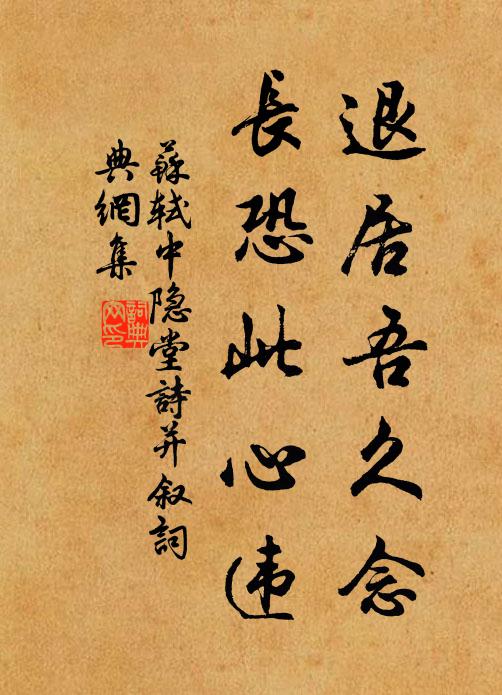 退居吾久念
長恐此心违
蘇軾中隐堂詩并叙詞
典網集
詞典
网印